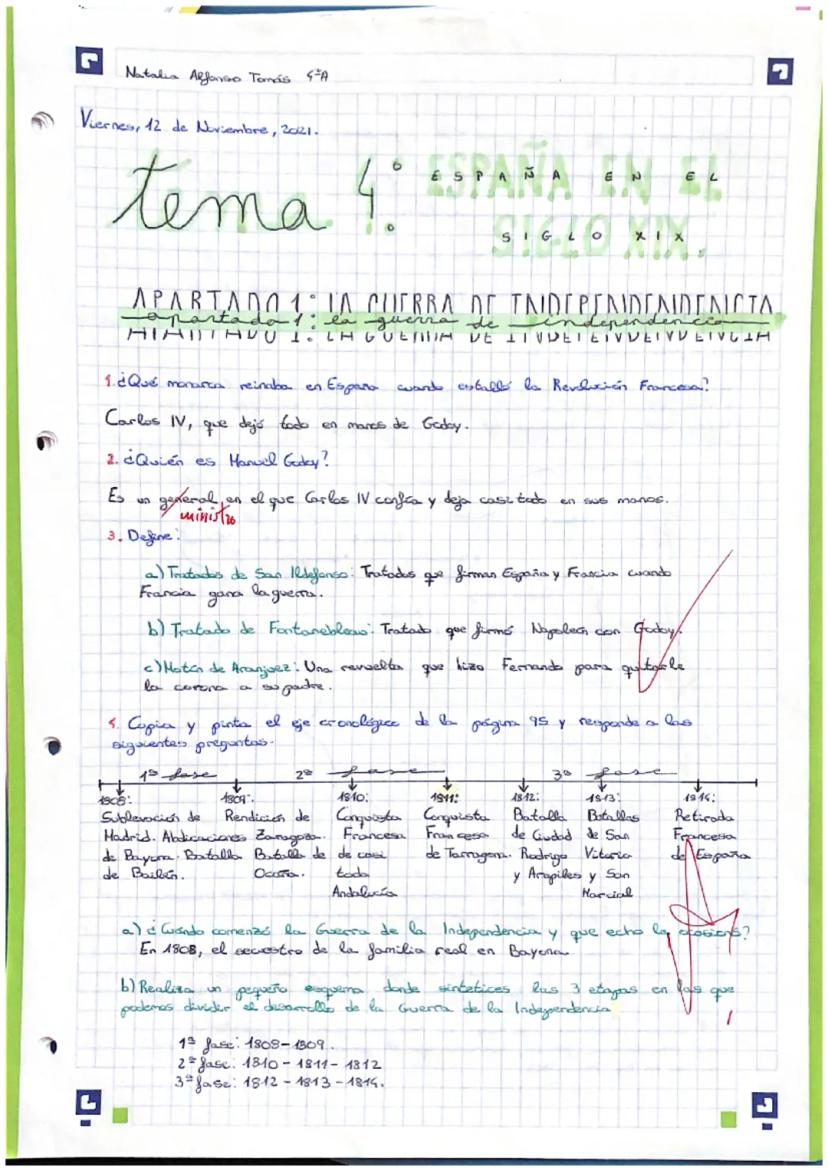 Natalia Alfonso Tomás 4ºA
Viernes, 12 de Noviembre, 2021.
tema 4:
ESPAÑA EN EL
SIGLO XIX.
APARTADO 1: LA GUERRA DE INDEPENDENDENCIA
apartado 1: la guerra de independencia
1. ¿Qué monarca reinaba en España cuando estalló la Revolución Francesa?
Carlos IV, que dejó todo en manos de Godoy.
2. ¿Quién es Manuel Godoy?
Es un general, en el que Carlos IV confía y deja casi todo en sus manos.
ministro
3. Define:
a) Tratados de San Ildefonso: Tratados que firman España y Francia cuando
Francia gana la guerra.
b) Tratado de Fontanebleau: Tratado que firmó Napoleón con Godoy.
c) Motín de Aranjuez: Una revuelta que hizo Fernando para quitarle
la corona a su padre.
4. Copia y pinta el eje cronológico de la página 95 y responde a las
siguientes preguntas.
1ª fase 2ª fase 3ª fase
1808: 1809: 1810: 1811: 1812: 1813: 1814:
Sublevación de Rendición de Conquista Conquista Batalla Batallas Retirada
Madrid. Abdicaciones Zaragoza. Francesa Francesa de Ciudad de San Francesa
de Bayona. Batalla Batalla de de casi de Tarragona. Rodrigo Vitoria de España
de Bailén. Ocaña. toda y Arapiles y San
Andalucía Marcial
a) ¿Cuándo comenzó la Guerra de la Independencia y que echo la ocasionó?
En 1808, el secuestro de la familia real en Bayona.
b) Realiza un pequeño esquema donde sintetices las 3 etapas en las que
podemos dividir el desarrollo de la Guerra de la Independencia
1ª fase: 1808-1809.
2ª fase: 1810 - 1811 - 1812
3ª fase: 1812 - 1813 - 1814.